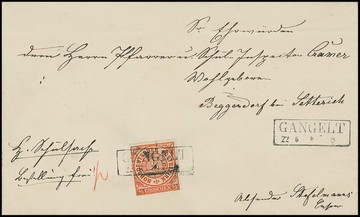 Sr Ehrwürden
dem Herrn Pfarrer u. Schul-Inspector Cramer
Wohlgeboren
Beggendorf bei Setterich
GANGELT
22 6
GROSCHEN
H. Schulsache
Bestellung frei 1/2
Absender